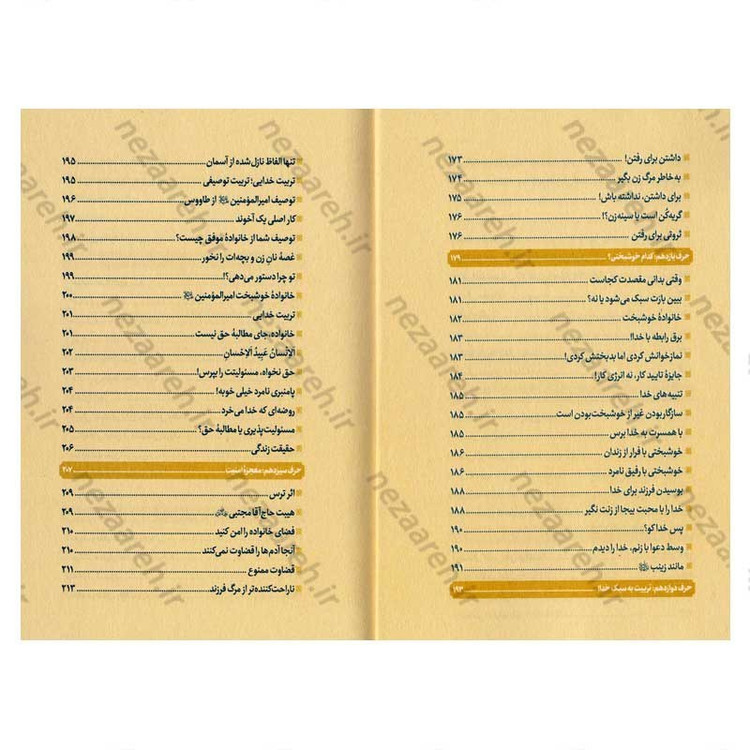 داشتن برای رفتن! ۱۷۳
به خاطر مرگ زن بگیر ۱۷۴
برای داشتن، نداشته باش! ۱۷۵
گریه‌کُن است یا سینه‌زن؟! ۱۷۶
ثروتی برای رفتن ۱۷۶
حرف یازدهم: کدام خوشبختی؟ ۱۷۹
وقتی بدانی مقصدت کجاست ۱۸۱
ببین بارت سبک می‌شود یا نه؟ ۱۸۱
خانوادهٔ خوشبخت ۱۸۲
برق رابطه با خدا! ۱۸۳
نمازخوانش کردی اما بدبختش کردی! ۱۸۳
جایزهٔ تایید کار، نه انرژی کار! ۱۸۴
تنبیه‌های خدا ۱۸۵
سازگار بودن غیر از خوشبخت بودن است ۱۸۵
با همسرت به خدا برس ۱۸۵
خوشبختی با فرار از زندان ۱۸۶
خوشبختی با رفیق نامرد ۱۸۶
بوسیدن فرزند برای خدا ۱۸۸
خدا را با محبت بیجا از زنت نگیر ۱۸۸
پس خدا کو؟ ۱۹۰
وسط دعوا با زنم، خدا را دیدم ۱۹۰
مانند زینب ۱۹۱
حرف دوازدهم: تربیت به سبک خدا! ۱۹۳
تنها الفاظ نازل شده از آسمان ۱۹۵
تربیت خدایی؛ تربیت توصیفی ۱۹۵
توصیف امیرالمؤمنین از طاووس ۱۹۶
کار اصلی یک آخوند ۱۹۷
توصیف شما از خانوادهٔ موفق چیست؟ ۱۹۸
غصهٔ نانِ زن و بچه‌ات را نخور ۱۹۹
تو چرا دستور می‌دهی؟! ۱۹۹
خانوادهٔ خوشبخت امیرالمؤمنین ۲۰۰
تربیت خدایی ۲۰۱
خانواده، جای مطالبهٔ حق نیست ۲۰۱
الإنسانُ عَبیدُ الإحسانِ ۲۰۲
حق نخواه، مسئولیتت را بپرس! ۲۰۳
پامنبری نامرد خیلی خوبه! ۲۰۴
روضه‌ای که خدا می‌خرد ۲۰۴
مسئولیت‌پذیری یا مطالبهٔ حق؟ ۲۰۵
حقیقت زندگی ۲۰۶
حرف سیزدهم: معجزهٔ امنیت ۲۰۷
اثر ترس ۲۰۹
هیبت حاج آقا مجتبی ۲۰۹
فضای خانواده را امن کنید ۲۱۰
آنجا آدم‌ها را قضاوت نمی‌کنند ۲۱۰
قضاوت ممنوع ۲۱۱
ناراحت‌کننده‌تر از مرگ فرزند ۲۱۳
nezaareh.ir